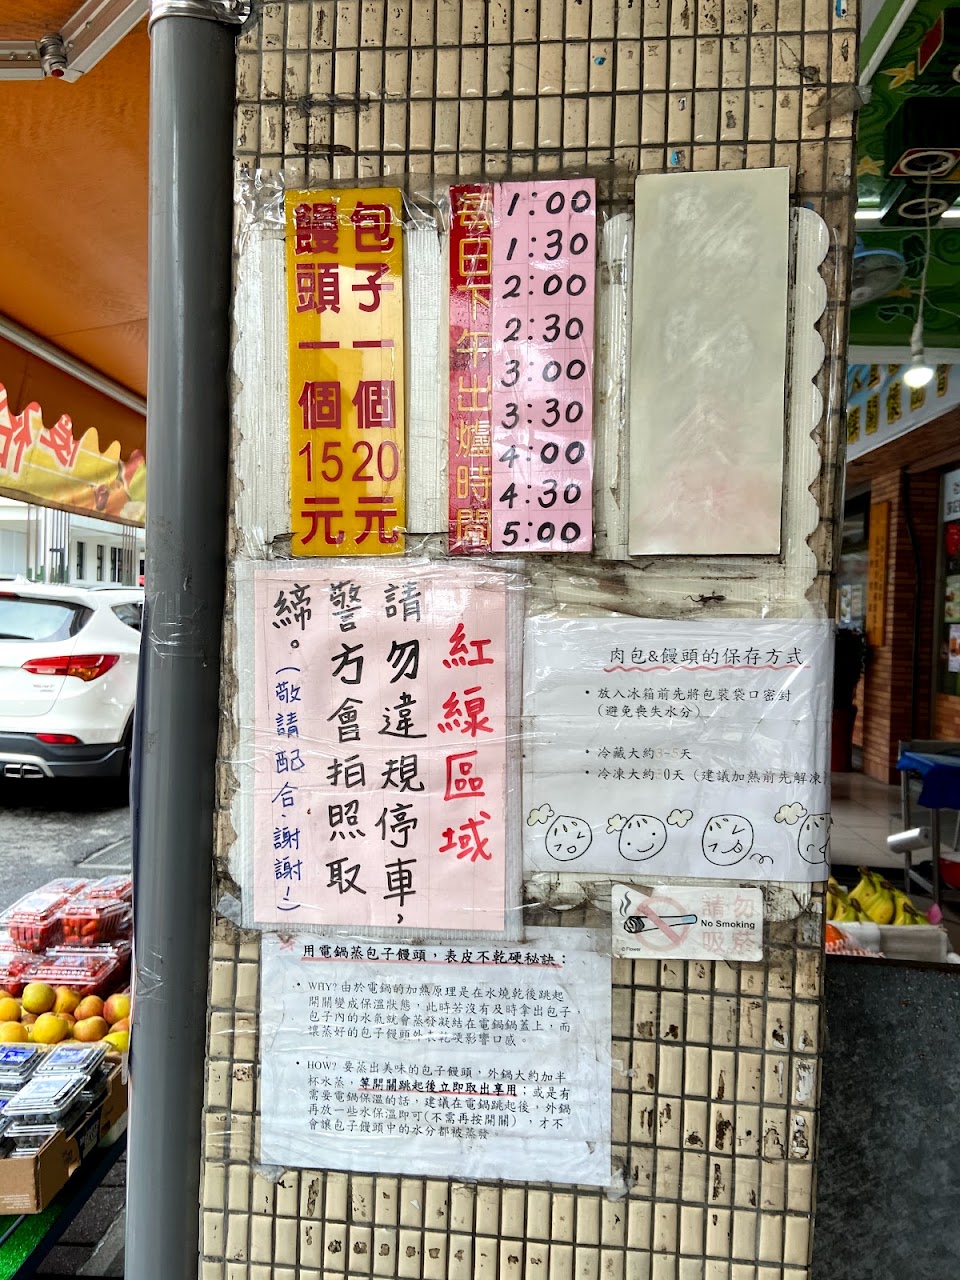 包子一個20元
饅頭一個15元
每日下午出爐時間
1:00
1:30
2:00
2:30
3:00
3:30
4:00
4:30
5:00
紅線區域
請勿違規停車，
警方會拍照取
締。(敬請配合，謝謝！)
肉包&饅頭的保存方式
• 放入冰箱前先將包裝袋口密封
(避免喪失水分)
• 冷藏大約3-5天
• 冷凍大約 0天 (建議加熱前先解凍
請勿
No Smoking
吸菸
用電鍋蒸包子饅頭，表皮不乾硬秘訣：
• WHY? 由於電鍋的加熱原理是在水燒乾後跳起
開關變成保溫狀態，此時若沒有及時拿出包子，
包子內的水氣就會蒸發凝結在電鍋鍋蓋上，而
讓蒸好的包子饅頭外表乾硬影響口感。
• HOW? 要蒸出美味的包子饅頭，外鍋大約加半
杯水蒸，等開關跳起後立即取出享用；或是有
需要電鍋保溫的話，建議在電鍋跳起後，外鍋
再放一些水保溫即可(不需再按開關)，才不
會讓包子饅頭中的水分都被蒸發。